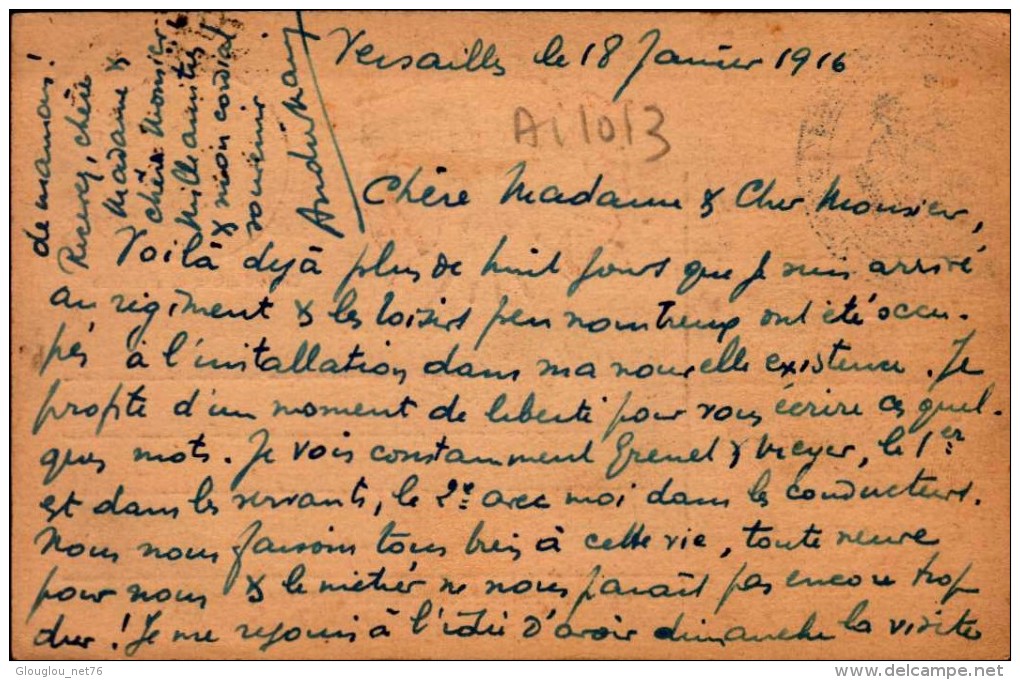 Versailles le 18 Janvier 1916
Ai 1013
Chère Madame & Cher Monsieur,
Voilà dejà plus de huit jours que je suis arrivé
au régiment & les loisirs peu nombreux ont été occu-
pés à l'installation dans ma nouvelle existence. Je
profite d'un moment de liberté pour vous écrire ces quel-
ques mots. Je vois constamment Grenet & Meyer, le 1er
est dans les servants, le 2e avec moi dans les conducteurs.
Nous nous faisons tous bien à cette vie, toute neuve
pour nous & le métier ne nous paraît pas encore trop
dur! Je me rejouis à l'idée d'avoir dimanche la visite
de maman!
Recevez, chère
Madame &
chère Monsieur
Mille amitiés
& mon cordial
souvenir
André
Glouglou_net76
www.delcampe.net